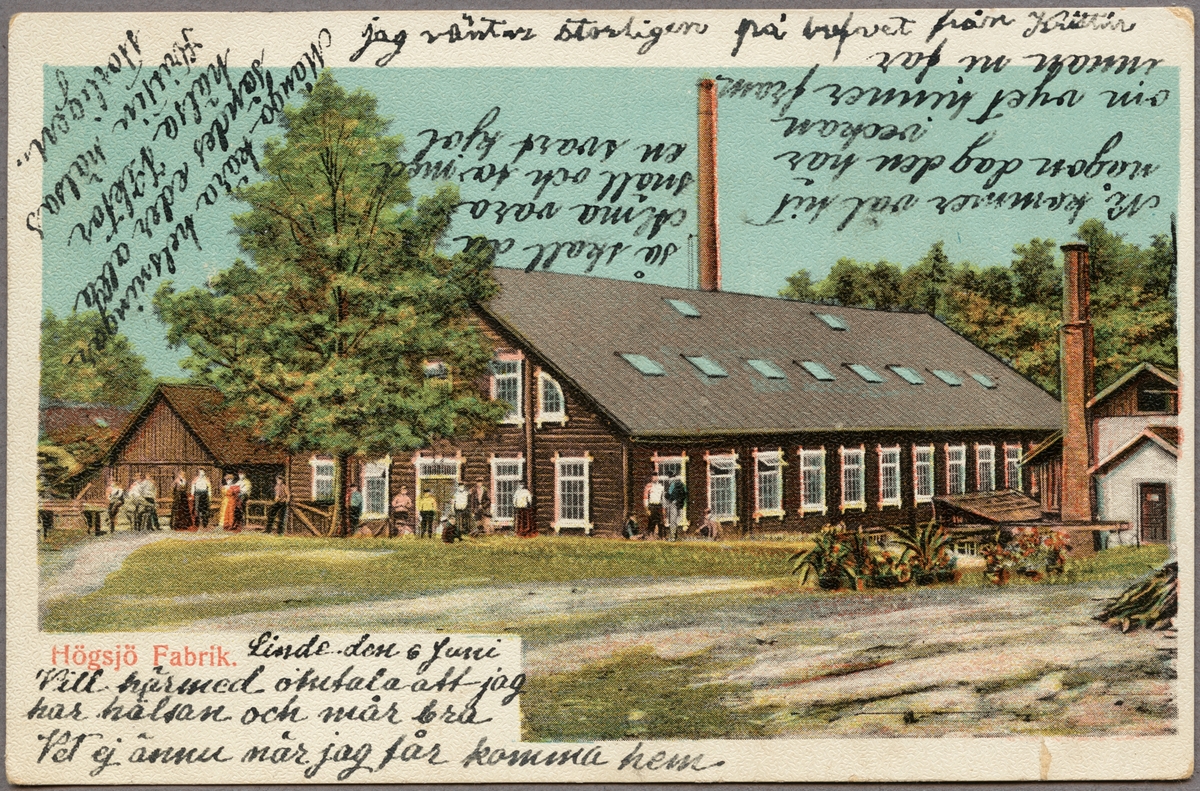 Högsjö Fabrik.
Linde den 6 Juni
Vill härmed omtala att jag
har hälsan och mår bra
Vet ej ännu när jag får komma hem.
Ni kommer väl hit
någon dag den här
veckan
om vyet hinner fram
innan ni far
så skall du
Alma vara
snäll och ta med
en svart kjol
Många kära helsningar
sändes eder alla
hälsa Doktor
Kristin hälsas
storligen.
jag väntar storligen på brefvet från Kristin